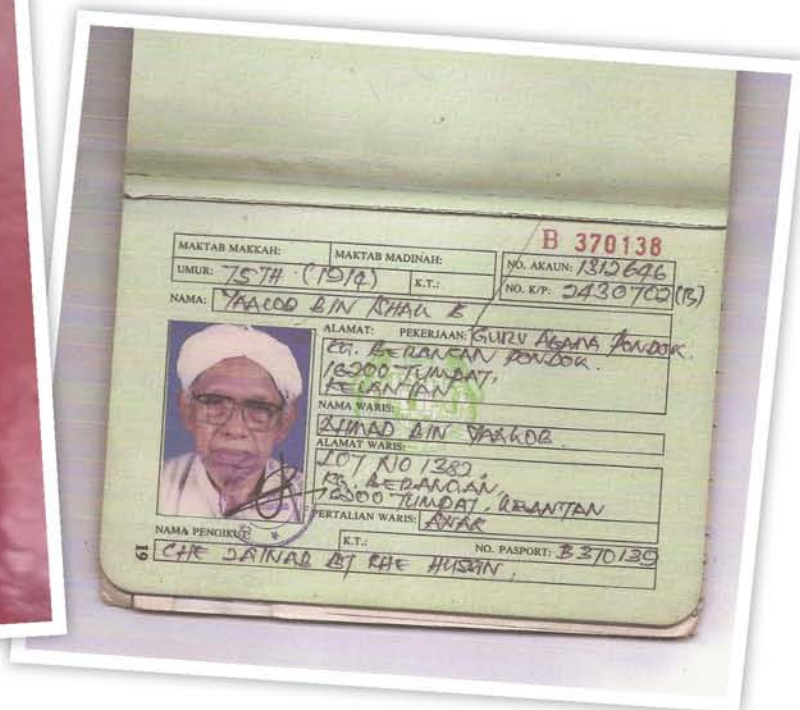 B 370138
MAKTAB MAKKAH:
MAKTAB MADINAH:
NO. AKAUN: 1312646
UMUR: 75TH (1914)
K.T.:
NO. K/P: 2430702(B)
NAMA: YAACOB BIN ISHAK B
ALAMAT: PEKERJAAN: GURU AGAMA PONDOK.
KG. BERANGAN PONDOK.
16200 TUMPAT,
KELANTAN
NAMA WARIS:
AHMAD BIN YAAKOB.
ALAMAT WARIS:
LOT NO 1382,
KG. BERANGAN,
16200 TUMPAT, KELANTAN
PERTALIAN WARIS: ANAK
NAMA PENGIKUT:
K.T.:
NO. PASPORT: B370139
CHE ZAINAB BT CHE HUSSIN,
19